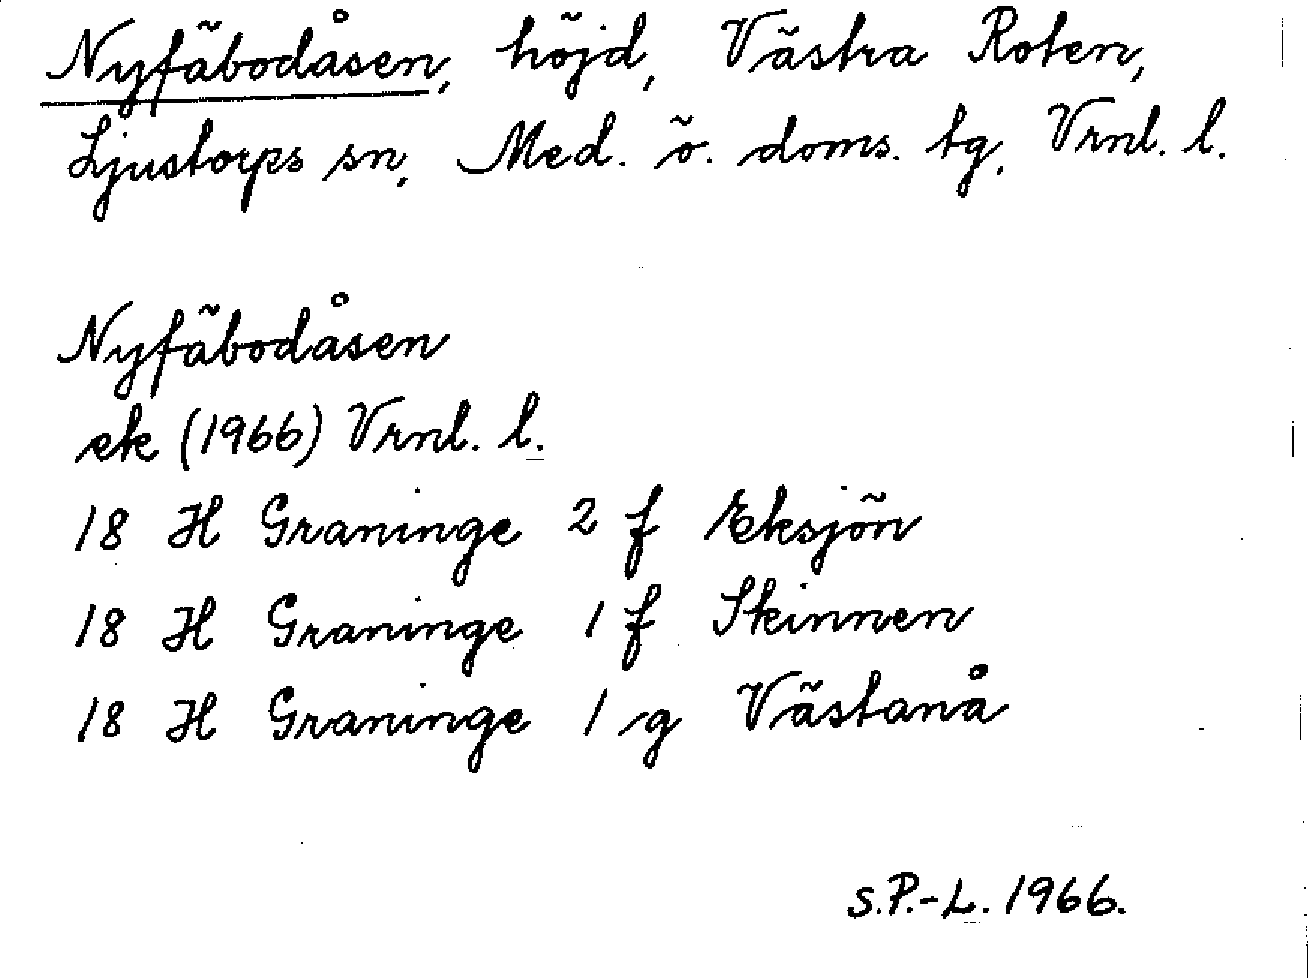 Nyfäbodåsen, höjd, Västra Roten,
Ljustorps sn, Med. ö. doms. tg, Vrnl. l.
Nyfäbodåsen
ek (1966) Vrnl. l.
18 H Graninge 2 f Eksjön
18 H Graninge 1 f Skinnen
18 H Graninge 1 g Västanå
S.P.-L. 1966.